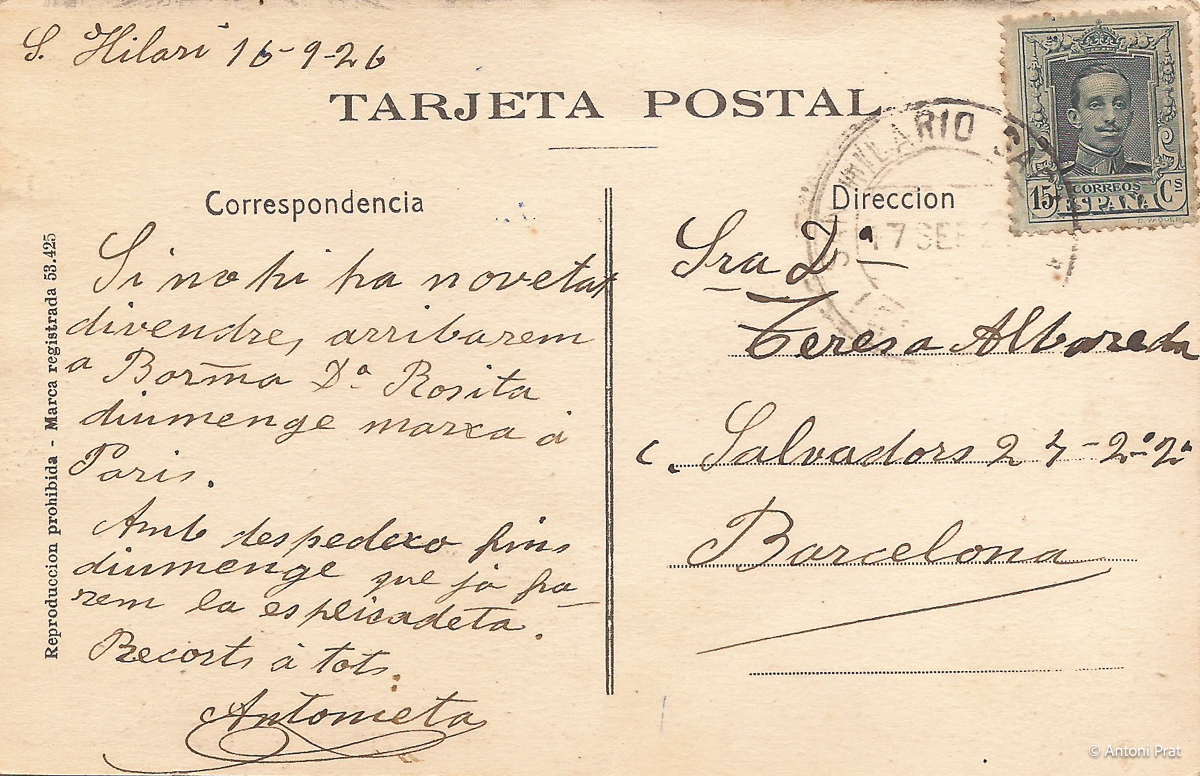 S. Hilari 16-9-26
TARJETA POSTAL
Correspondencia
Si no hi ha novetat
divendre, arribarem
a Barna Da Rosita
diumenge marxa á
Paris.
Amb despedexo fins
diumenge que ja fa-
rem la esplicadeta.
Recorts á tots.
Antonieta
Reproduccion prohibida - Marca registrada 53.425
15 CORREOS Cs
ESPAÑA
E. VAQUER
HILARIO SA
17 SEP 2
Direccion
Sra Dª
Teresa Albareda
C. Salvadors 24-2º-2ª
Barcelona
© Antoni Prat